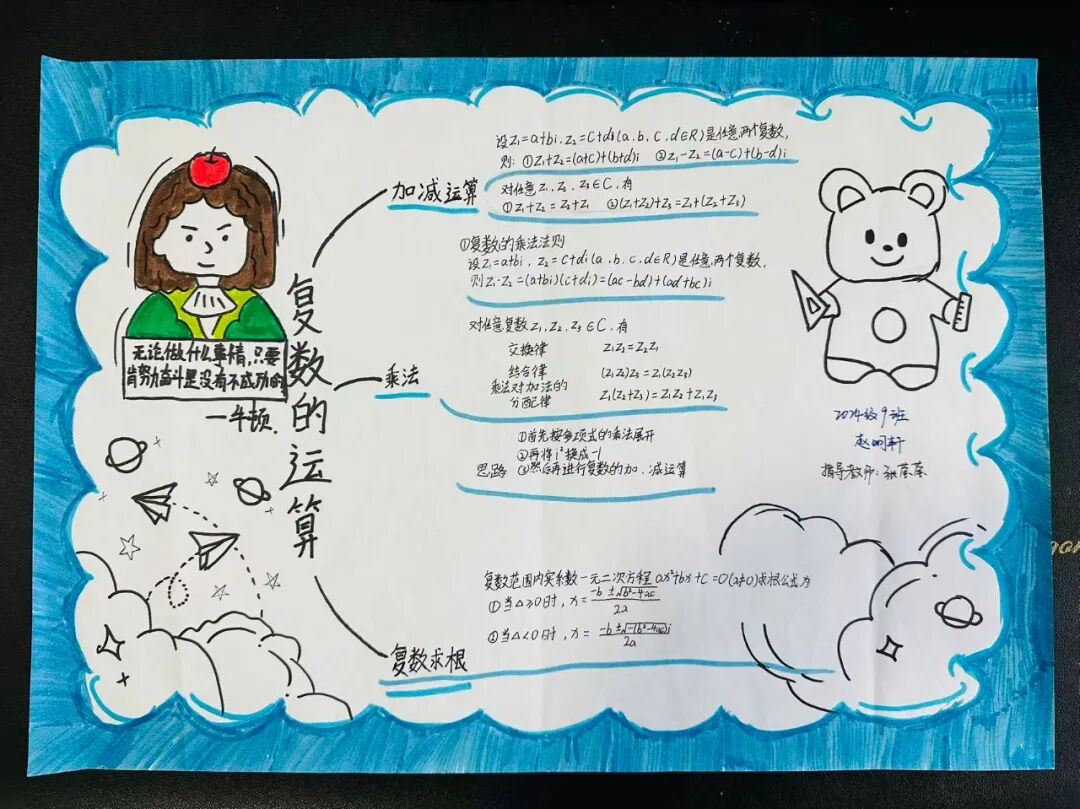 复数的运算
无论做什么事情,只要
肯努力奋斗是没有不成功的
—牛顿.
加减运算
设Z₁=a+bi,Z₂=C+di(a.b,c,d∈R)是任意两个复数,
则:①Z₁+Z₂=(a+c)+(b+d)i ②Z₁-Z₂=(a-c)+(b-d)i
对任意Z₁,Z₂,Z₃∈C,有
①Z₁+Z₂=Z₂+Z₁ ②(Z₁+Z₂)+Z₃=Z₁+(Z₂+Z₃)
乘法
①复数的乘法法则
设Z₁=a+bi,Z₂=C+di(a.b,c,d∈R)是任意两个复数,
则Z₁·Z₂=(a+bi)(c+di)=(ac-bd)+(ad+bc)i
对任意复数Z₁,Z₂,Z₃∈C.有
交换律 Z₁Z₂=Z₂Z₁
结合律 (Z₁Z₂)Z₃=Z₁(Z₂Z₃)
乘法对加法的
分配律 Z₁(Z₂+Z₃)=Z₁Z₂+Z₁Z₃
①首先按多项式的乘法展开
②再将i²换成-1
思路 ③然后再进行复数的加、减运算
复数求根
复数范围内实系数一元二次方程ax²+bx+c=0(a≠0)求根公式为
①当△≥0时,x=(-b±√b²-4ac)/2a
②当△<0时,x=(-b±√-(b²-4ac)i)/2a
2024级9班
赵明轩
指导教师:张蓓蓓